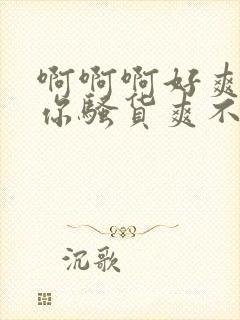 啊啊啊好爽
你骚货爽不
沉歌